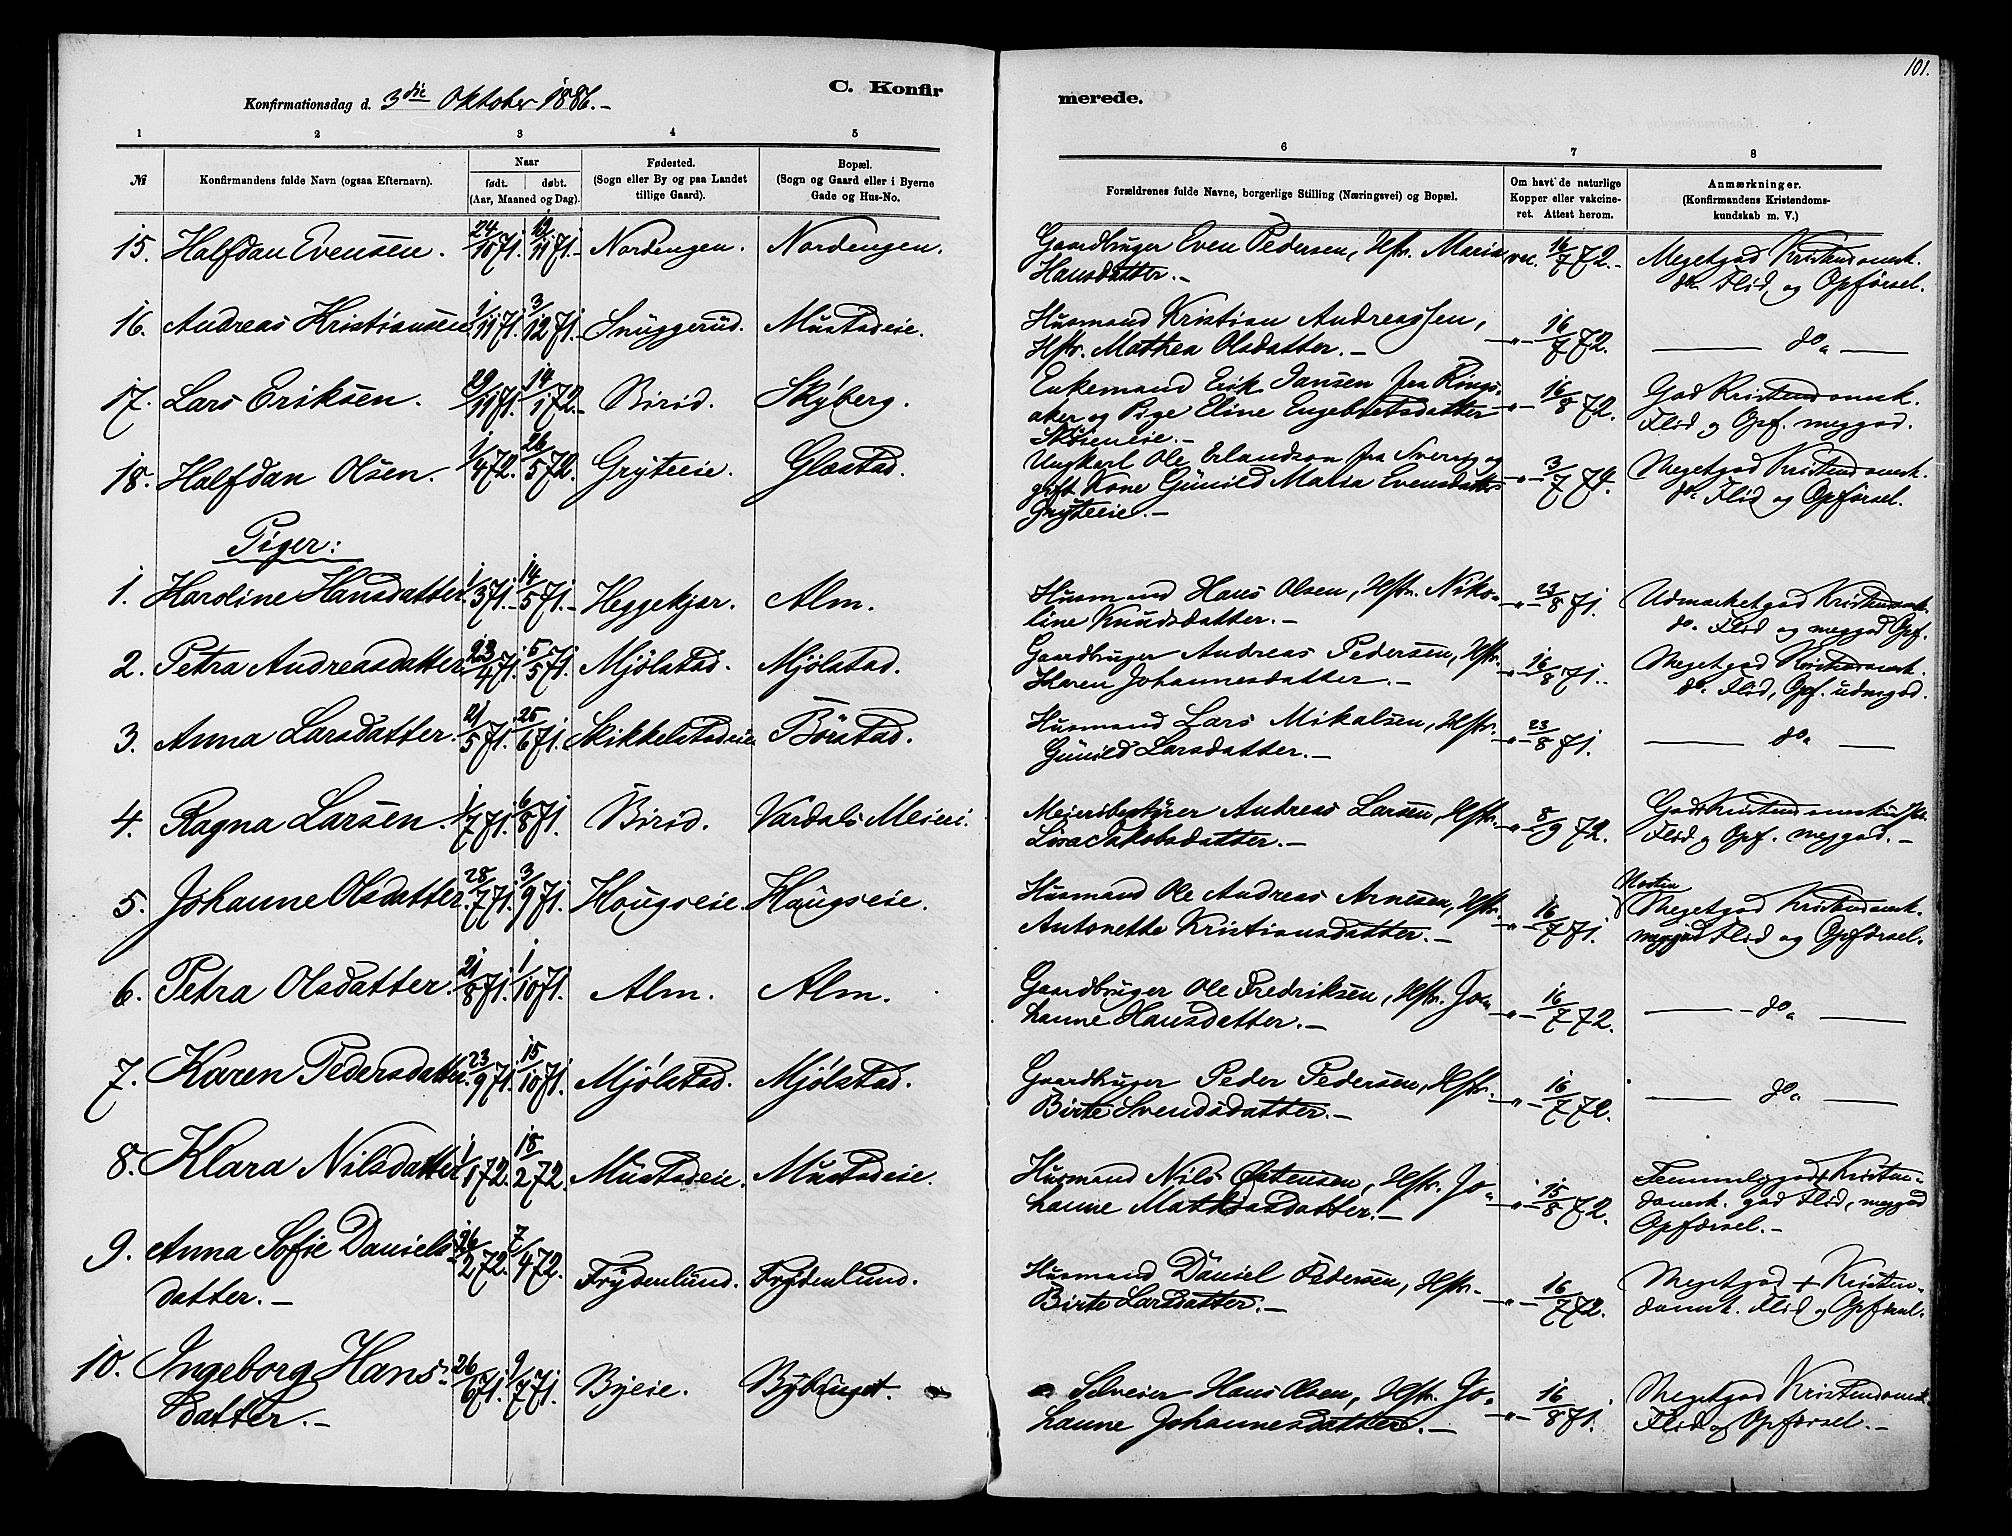 101.
Konfirmationsdag d. 3die Oktober 1886.-
C. Konfir
merede.
1 2 3 4 5 6 7 8
№
Konfirmandens fulde Navn (ogsaa Efternavn).
Naar
født. døbt.
(Aar, Maaned og Dag).
Fødested.
(Sogn eller By og paa Landet
tillige Gaard).
Bopæl.
(Sogn og Gaard eller i Byerne
Gade og Hus-No.
Forældrenes fulde Navne, borgerlige Stilling (Næringsvei) og Bopæl.
Om havt de naturlige
Kopper eller vakcine-
ret. Attest herom.
Anmærkninger.
(Konfirmandens Kristendoms-
kundskab m. V.)
15. Halfdan Evensen. 24/10 71. 19/11 71.- Nordengen. Nordengen. Gaardbruger Even Pedersen, Hstr. Maria vac. 16/7 72.- Megetgod Kristendomsk.
Hansdatter.- do. Flid og Opförsel.
16. Andreas Kristiansen 1/11 71. 3/12 71.- Snuggerud. Mustadeie. Husmand Kristian Andreassen,
Hstr. Mathea Olsdatter.- -"- 16/7 72. do.
17. Lars Eriksen. 29/11 71. 14/1 72.- Birid. Skyberg. Enkemand Erik Jansen fra Rings-
aker og Pige Eline Engebretsdatter -"- 16/8 72. God Kristendomsk.
Flid og Opf. meggod.
18. Halfdan Olsen. 1/4 72. 26/5 72. Gryteeie. Glæstad. Ungkarl Ole Erlandson fra Sverig og
gift Kone Gunild Maria Evensdatter -"- 3/7 74. Megetgod Kristendomsk.
Gryteeie.- do. Flid og Opförsel.
Piger:
1. Karoline Hansdatter. 1/3 71.- 14/5 71.- Heggekjær. Alm. Husmand Hans Olsen, Hstr. Niko-
line Knudsdatter.- -"- 23/8 71. Udmærketgod Kristendomsk.
do. Flid og meggod Opf.
2. Petra Andreasdatter 23/4 71. 5/5 71. Mjölstad. Mjölstad. Gaardbruger Andreas Pedersen, Hstr.
Karen Johannesdatter.- -"- 16/8 71. Megetgod Kristendomsk.
do. Flid, Opf. udmgod.
3. Anna Larsdatter. 21/5 71. 25/6 71. Skikkelstadeie Börstad. Husmand Lars Mikalsen, Hstr.
Gunild Larsdatter.- -"- 23/8 71. do.
4. Ragna Larsen. 1/7 71. 6/8 71. Birid. Vardals Meieri. Meieribestyrer Andreas Larsen, Hstr.
Lisa Jakobsdatter.- -"- 8/9 72. God Kristendomskundsk.
Flid og Opf. meggod.-
5. Johanne Olsdatter. 28/7 71. 3/9 71. Hougseie. Haugseie. Husmand Ole Andreas Arnesen, Hstr.
Antonette Kristiansdatter.- -"- 16/7 71. Næsten
Megetgod Kristendomsk.
meggod Flid og Opförsel.
6. Petra Olsdatter. 21/8 71. 1/10 71. Alm. Alm. Gaardbruger Ole Fredriksen, Hstr. Jo-
hanne Hansdatter.- -"- 16/7 72. do.
7. Karen Pedersdatter. 23/9 71. 15/10 71. Mjölstad. Mjölstad. Gaardbruger Peder Pedersen, Hstr.
Birte Svendsdatter.- -"- 16/7 72. do.
8. Klara Nilsdatter 1/1 72. 18/2 72. Mustadeie. Mustadeie. Husmand Nils Östensen, Hstr. Jo-
hanne Mathiasdatter.- -"- 15/8 72. Temmeliggod Kristen-
domsk. god Flid, meggod
Opförsel.-
9. Anna Sofie Daniels- 26/2 72. 7/4 72. Frydenlund. Frydenlund. Husmand Daniel Pedersen, Hstr.
datter.- Birte Larsdatter.- -"- 16/7 72. Megetgod + Kristen-
domsk. Flid og Opförsel.
10. Ingeborg Hans- 26/6 71. 9/7 71. Byeie. Bybruget. Selveier Hans Olsen, Hstr. Jo-
datter.- hanne Johannesdatter.- -"- 16/8 71. Megetgod Kristendomsk.
Flid og Opförsel.-